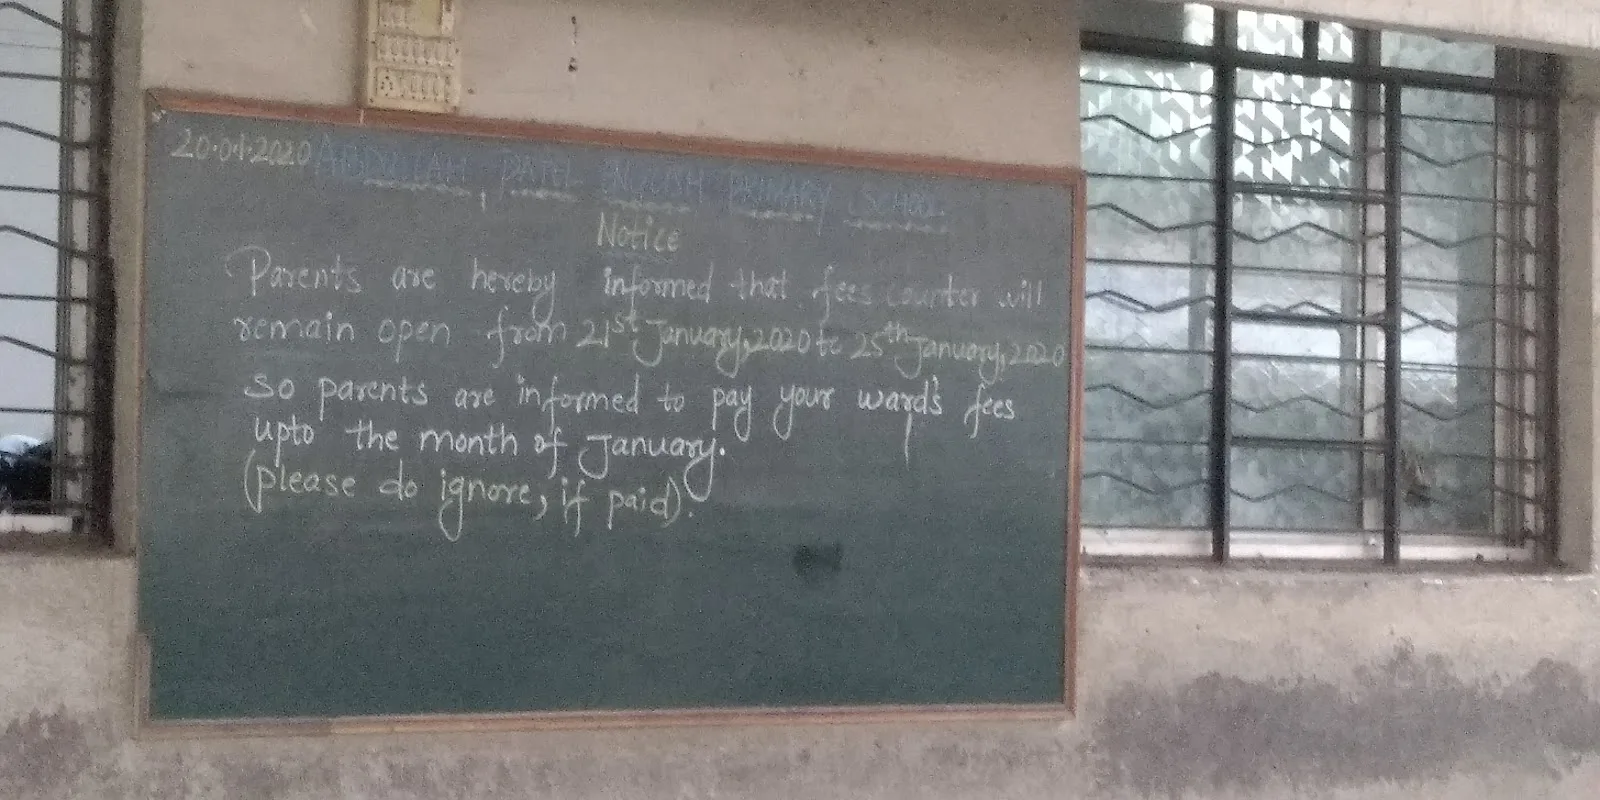 20.01.2020 ABDULLAH PATEL ENGLISH PRIMARY SCHOOL
Notice
Parents are hereby informed that fees counter will
remain open from 21st January, 2020 to 25th January, 2020
so parents are informed to pay your ward's fees
upto the month of January.
(please do ignore, if paid).